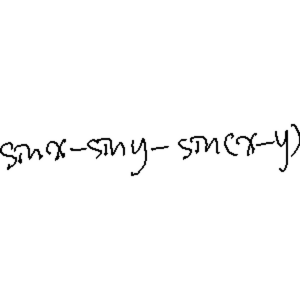 sin x - sin y - sin(x - y)